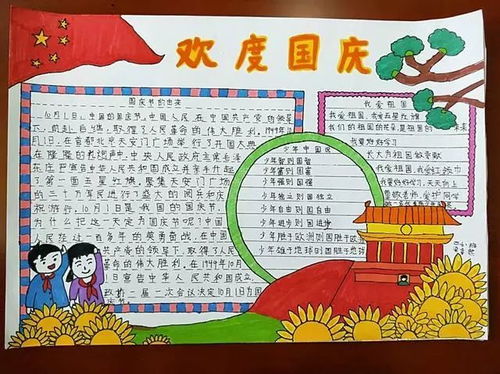 欢度国庆
国庆节的由来
10月1日,中国的国庆节,中国人民在中国共产党的领导
下,前赴后继,取得了人民革命的伟大胜利,1949年10
月1日,在首都北京天安门广场举行了开国大典
在隆隆的礼炮声中,中央人民政府主席毛泽
东庄严宣告中华人民共和国成立并亲手升起
了第一面五星红旗,聚集天安门广场
的三十万军民进行了盛大的阅兵和庆
祝游行,10月1日是我国的国庆节,
为什么把这一天定为国庆节呢?中国
人民在经一百多年的英勇奋战,在中国
共产党的领导下,取得了人民
革命的伟大胜利,在1949年10月
1日宣告中华人民共和国成立
第二次会议决定10月1日为国
少年中国说
少年智则国智
少年富则国富
少年强则国强
少年独立则国独立
少年自由则国自由
少年进步则国进步
少年胜于欧洲则国胜于欧洲
少年雄于地球则国雄于地球
我爱祖国
我爱祖国,我爱五星红旗
我们的祖国的花朵,是祖国的未来
我要好好学习
长大为祖国做贡献
我爱祖国,我爱红领巾
我要好好学习,天天向上
尊敬老师,爱护同学